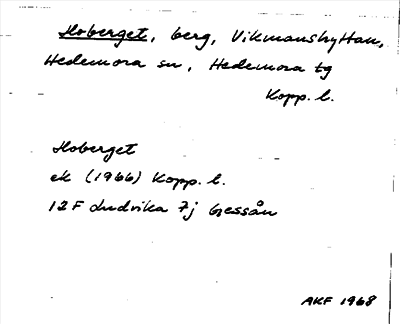 Hoberget, berg, Vikmanshyttan,
Hedemora sn, Hedemora tg
Kopp. l.
Hoberget
ek (1966) Kopp. l.
12F Ludvika 7j Gessån
AKF 1968